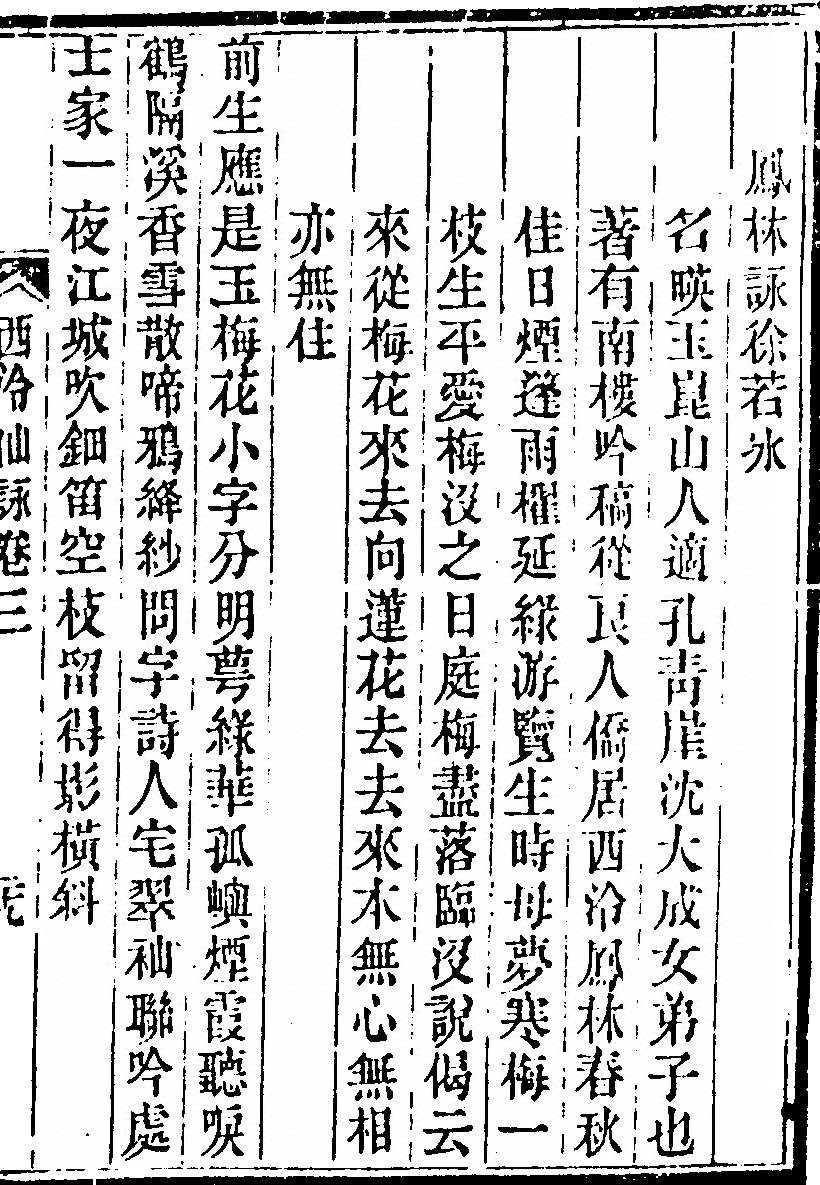 鳳林詠徐若冰
名暎玉崑山人適孔青崖沈大成女弟子也
著有南樓吟稿從良人僑居西泠鳳林春秋
佳日煙篷雨櫂延緣游覽生時母夢寒梅一
枝生平愛梅沒之日庭梅盡落臨沒說偈云
來從梅花來去向蓮花去去來本無心無相
亦無住
前生應是玉梅花小字分明萼綠華孤嶼煙霞聽唳
鶴隔溪香雪散啼鴉絳紗問字詩人宅翠袖聯吟處
士家一夜江城吹鈿笛空枝留得影橫斜
西泠仙詠卷三